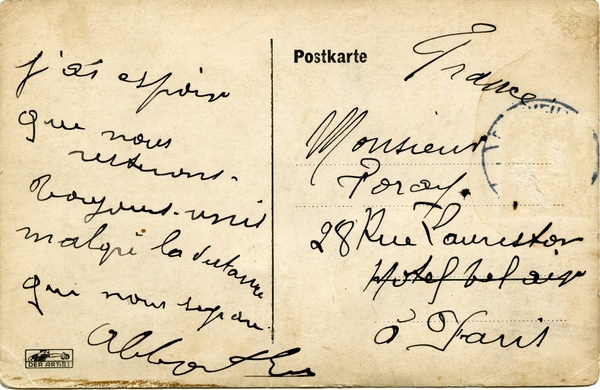 j'ai espoir
que nous
resterons
toujours unis
malgré la distance
qui nous sépare
Postkarte
France
Monsieur
Poray
28 Rue Lauriston
Hotel belair
à Paris
DER ARTIST